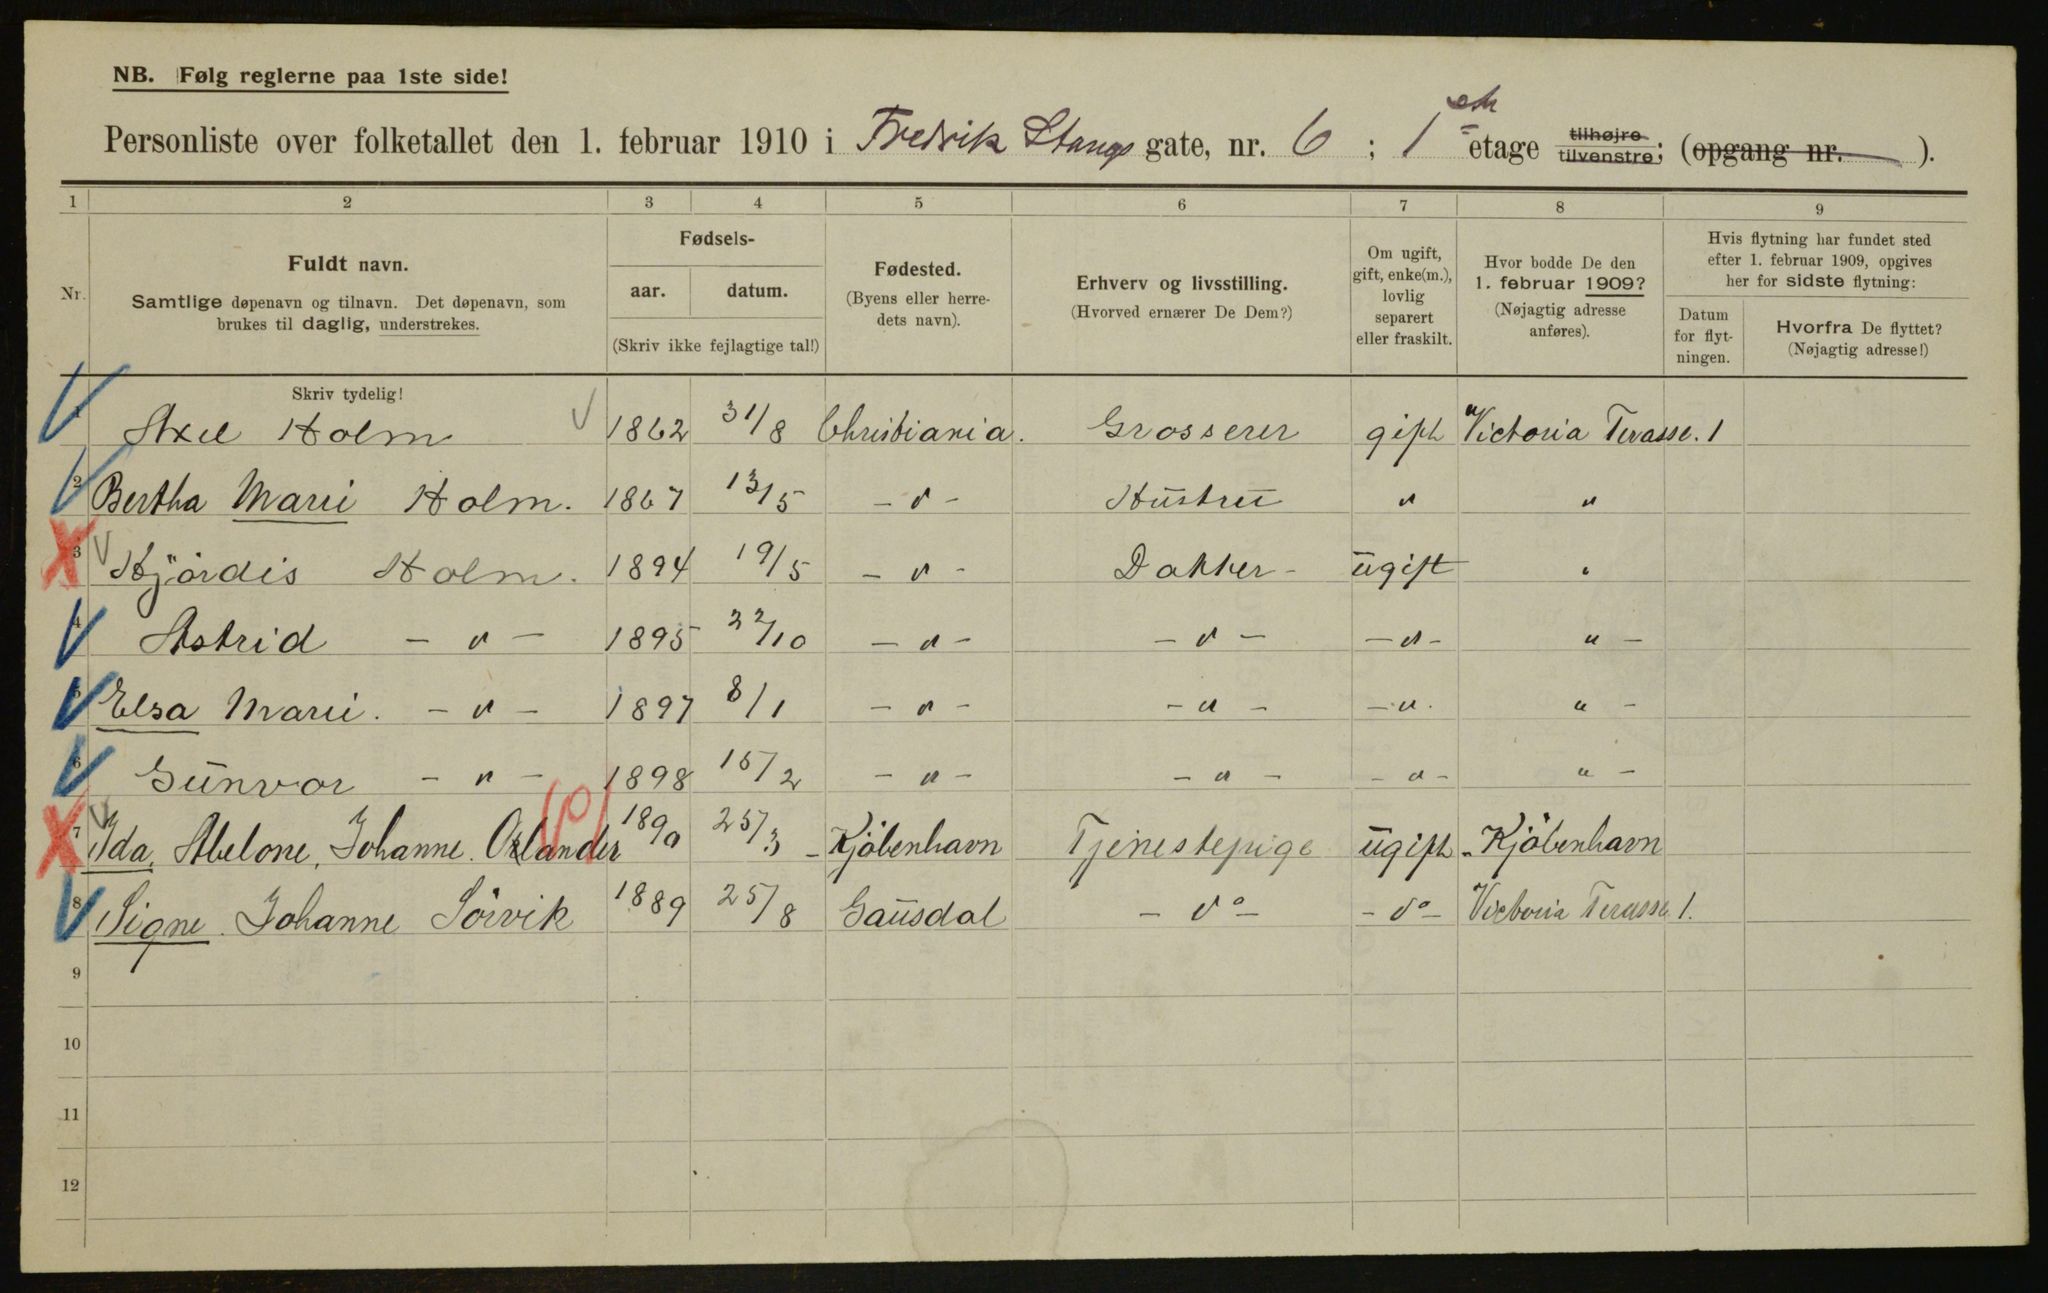 NB. Følg reglerne paa 1ste side!
Personliste over folketallet den 1. februar 1910 i Fredrik Stangs gate, nr. 6 ; 1 etage tilhøjre tilvenstre; (opgang nr. ).
1 2 3 4 5 6 7 8 9
Nr. Fuldt navn. Samtlige døpenavn og tilnavn. Det døpenavn, som brukes til daglig, understrekes.
Fødsels- aar. datum. (Skriv ikke fejlagtige tal!)
Fødested. (Byens eller herredets navn).
Erhverv og livsstilling. (Hvorved ernærer De Dem?)
Om ugift, gift, enke(m.), lovlig separert eller fraskilt.
Hvor bodde De den 1. februar 1909? (Nøjagtig adresse anføres).
Hvis flytning har fundet sted efter 1. februar 1909, opgives her for sidste flytning:
Datum for flytningen. Hvorfra De flyttet? (Nøjagtig adresse!)
Skriv tydelig!
1 Axel Holm 1862 31/8 Christiania. Grosserer gift Victoria Terasse. 1
2 Bertha Marie Holm. 1867 13/5 - " - Hustru " "
3 Hjördis Holm. 1894 19/5 - " - Dotter - ugift "
4 Astrid - " - 1895 22/10 - " - - " - - " - " -
5 Elsa Marie. - " - 1897 8/1 - " - - " - - " . " -
6 Gunvor - " - 1898 15/2 - " - - " - - " - " -
7 Ida, Abelone, Johanne. Orlander 1890 25/3 - Kjöbenhavn Tjenestepige ugift - Kjöbenhavn
8 Signe Johanne Sörvik 1889 25/8 Gausdal - do - - do - Victoria Terasse 1.
9
10
11
12